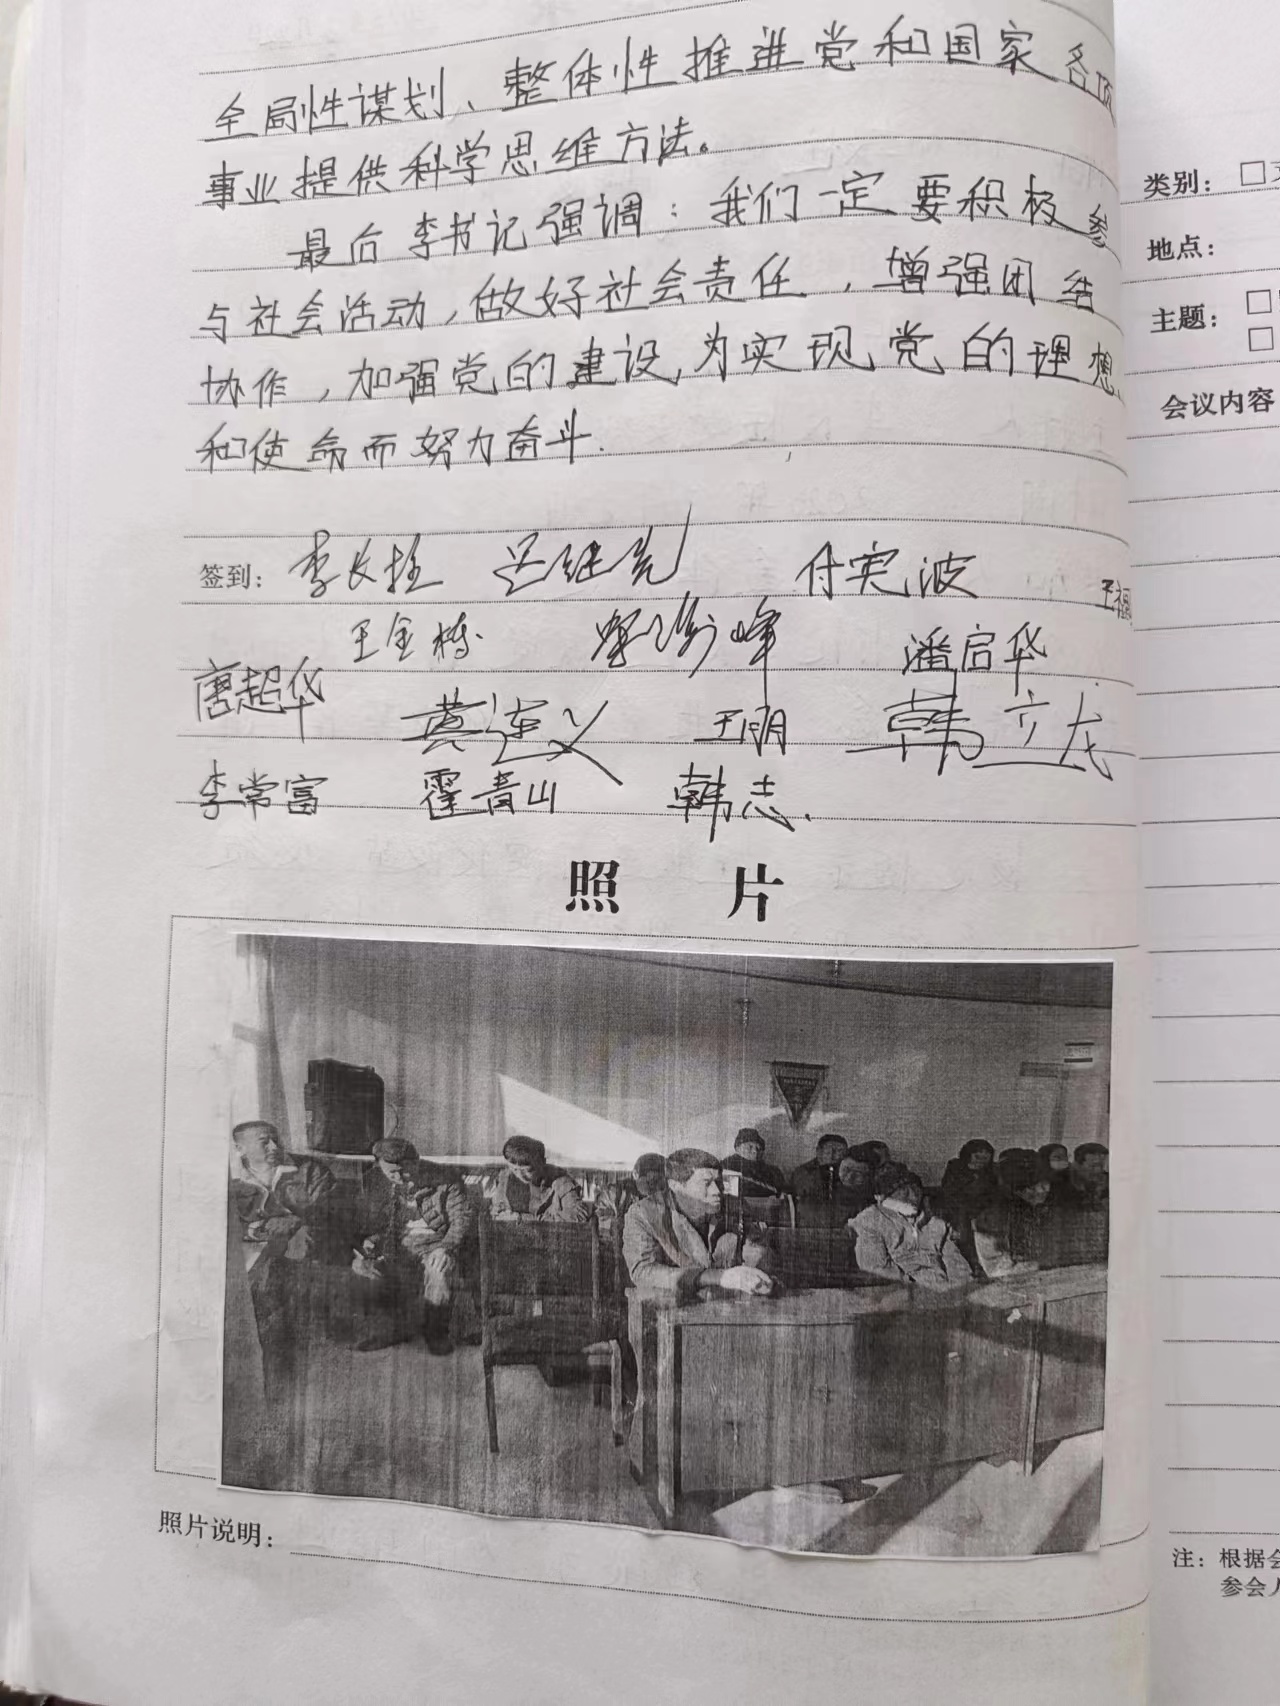 全局性谋划、整体性推进党和国家各项
事业提供科学思维方法。
最后李书记强调：我们一定要积极参
与社会活动,做好社会责任，增强团结
协作，加强党的建设,为实现党的理想
和使命而努力奋斗.
签到: 李长拴 吕继克 付宪波 王福
王金栋 峰 潘启华
唐超华 黄连义 王明 韩立龙
李常富 霍青山 韩志
照 片
照片说明:
类别: □
地点:
主题: □
□
会议内容
注: 根据会
参会人